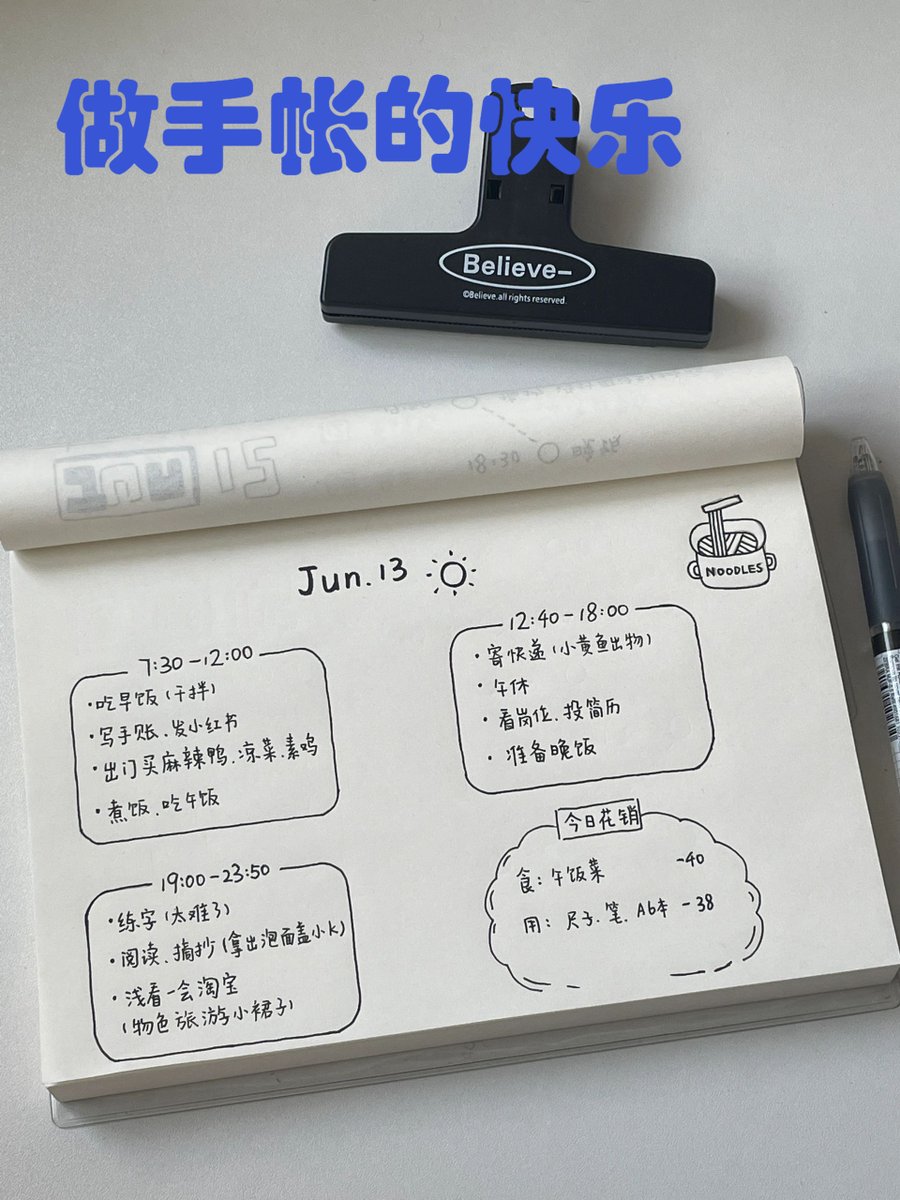 做手帐的快乐
Believe-
©Believe.all rights reserved.
18:30
Jun.13
NOODLES
7:30-12:00
·吃早饭(干拌)
·写手账、发小红书
·出门买麻辣鸭、凉菜、素鸡
·煮饭、吃午饭
12:40-18:00
·寄快递(小黄鱼出物)
·午休
·看岗位、投简历
·准备晚饭
19:00-23:50
·练字(太难了)
·阅读、摘抄(拿出泡面盖小K)
·浅看一会淘宝
(物色旅游小裙子)
今日花销
食:午饭菜 -40
用:尺子、笔、A6本 -38